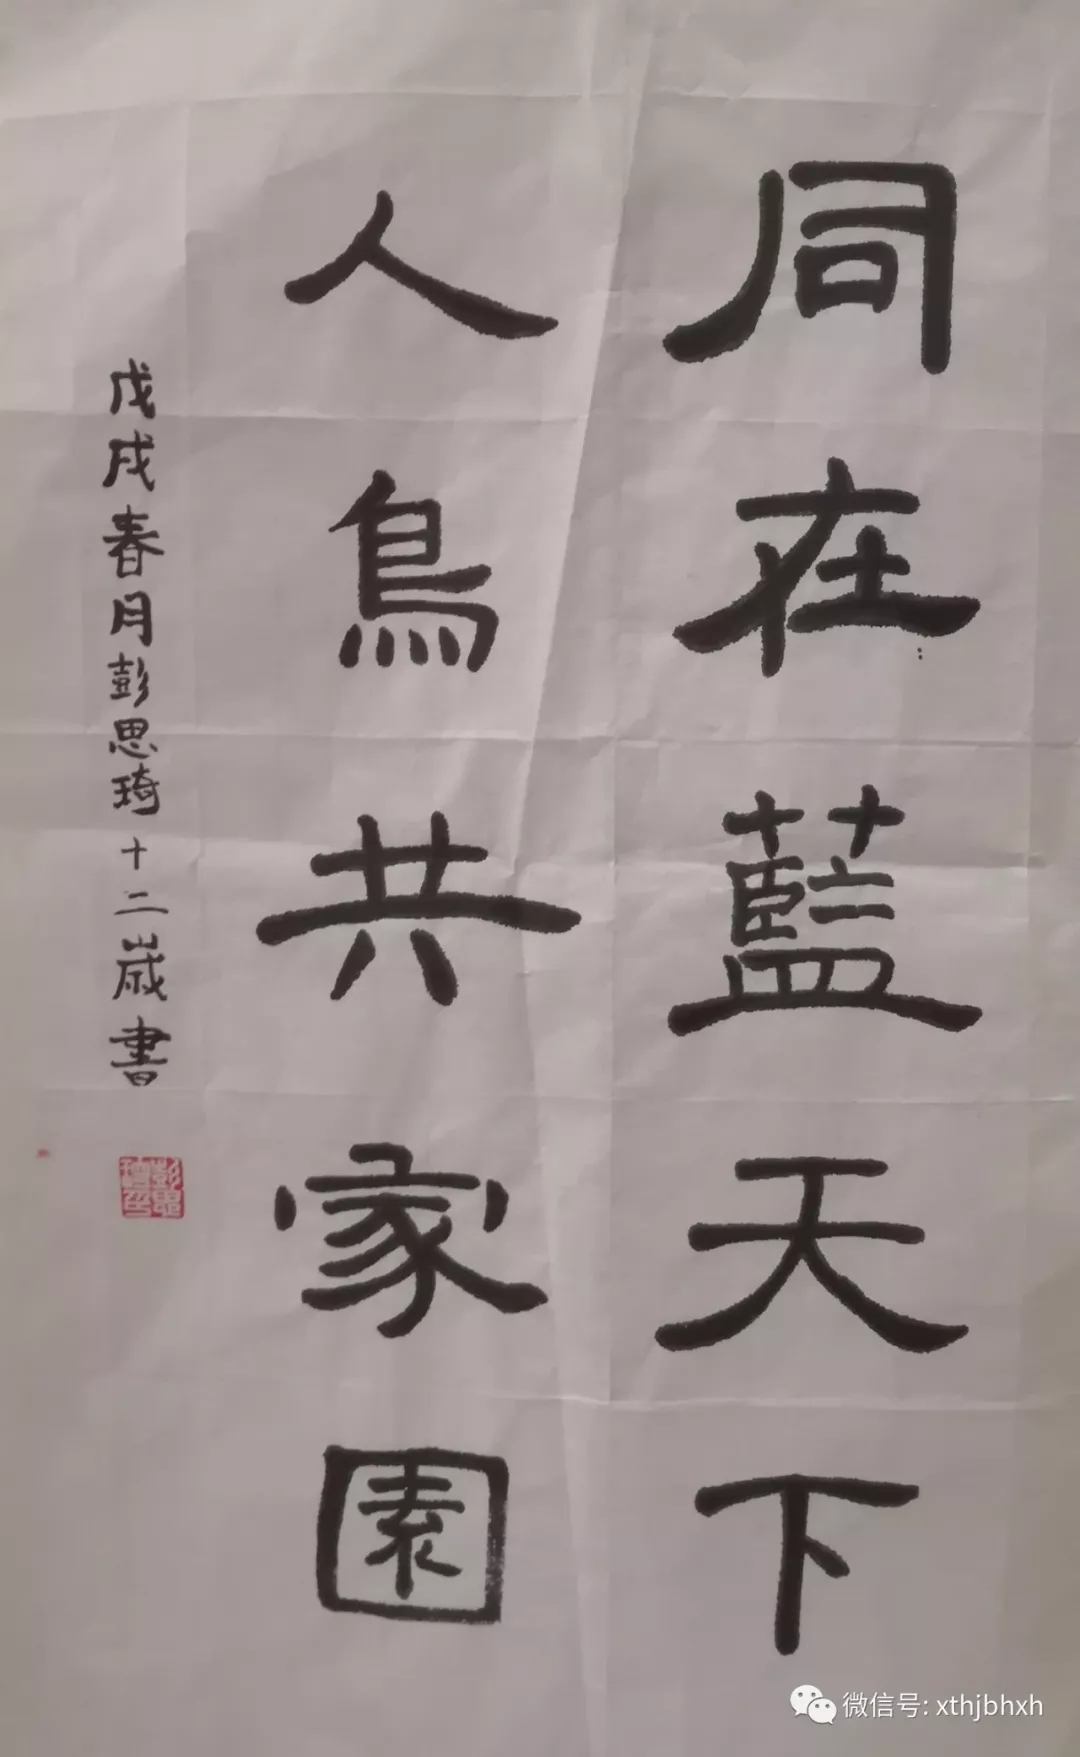 同在藍天下
人鳥共家園
戊戌春月彭思琦十二歲書
微信号: xthjbhxh